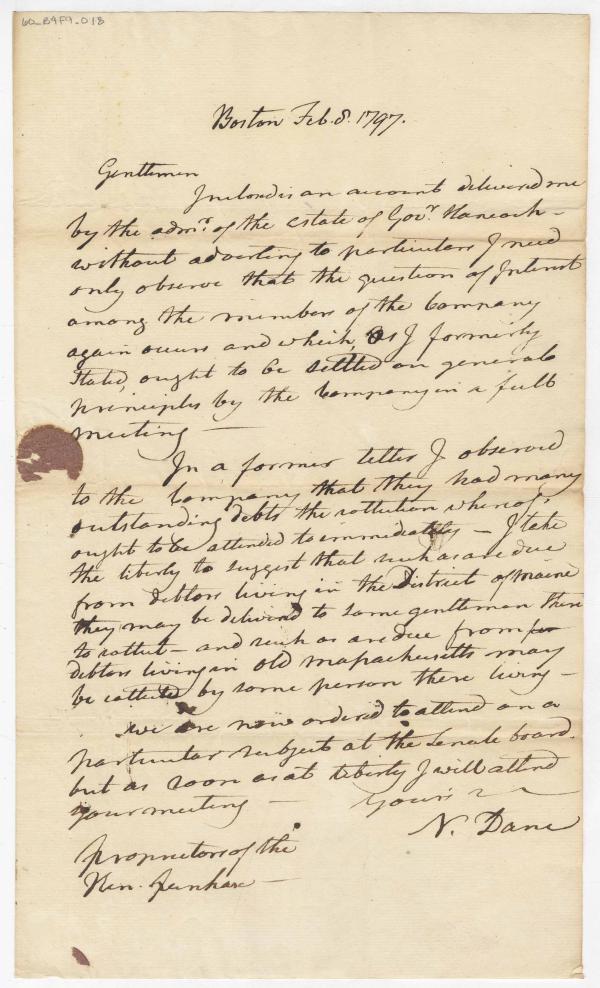 60_B4F9_018
Boston Feb. 8. 1797.
Gentlemen
Inclosed is an account delivered me
by the admr. of the estate of Govr. Hancock –
without adverting to particulars I need
only observe that the question of Interest
among the members of the Company
again occurs and which, as I formerly
stated, ought to be settled on general
principles by the Company in a full
meeting —
In a former letter I observed
to the Company that they had many
outstanding debts the collection whereof
ought to be attended to immediately – I take
the liberty to suggest that such as are due
from debtors living in the District of Maine
they may be delivered to some gentleman there
to collect – and such as are due from
debtors living in old Massachusetts may
be collected by some person there living –
we are now ordered to attend on a
particular subject at the Senate board.
but as soon as at liberty I will attend
your meeting —
Yours
N. Dane
proprietors of the
Ken. purchase —